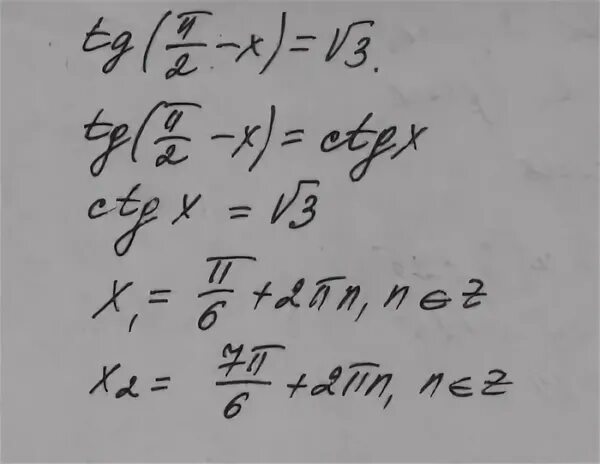 tg(π/2 - x) = √3.
tg(π/2 - x) = ctg x
ctg x = √3
x₁ = π/6 + 2πn, n ∈ z
x₂ = 7π/6 + 2πn, n ∈ z